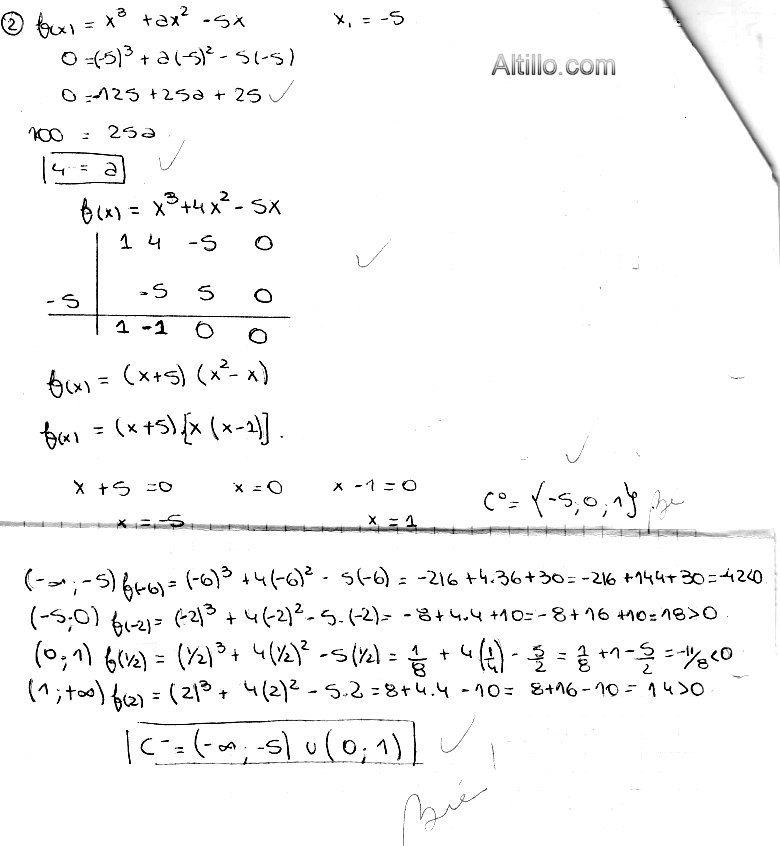 ② f(x) = x³ + ax² - 5x x₁ = -5
Altillo.com
0 = (-5)³ + a(-5)² - 5(-5)
0 = -125 + 25a + 25 ✓
100 = 25a
4 = a ✓
f(x) = x³ + 4x² - 5x
1 4 -5 0
-5 -5 5 0
1 -1 0 0
f(x) = (x+5) (x² - x)
f(x) = (x+5) [x (x-1)].
x + 5 = 0 x = 0 x - 1 = 0
C⁰ = {-5; 0; 1}
x = -5 x = 1
(-∞; -5) f(-6) = (-6)³ + 4(-6)² - 5(-6) = -216 + 4.36 + 30 = -216 + 144 + 30 = -42<0
(-5; 0) f(-2) = (-2)³ + 4(-2)² - 5.(-2) = -8 + 4.4 + 10 = -8 + 16 + 10 = 18>0
(0; 1) f(1/2) = (1/2)³ + 4(1/2)² - 5(1/2) = 1/8 + 4(1/4) - 5/2 = 1/8 + 1 - 5/2 = -11/8 <0
(1; +∞) f(2) = (2)³ + 4(2)² - 5.2 = 8 + 4.4 - 10 = 8 + 16 - 10 = 14>0
C⁻ = (-∞; -5) ∪ (0; 1) ✓